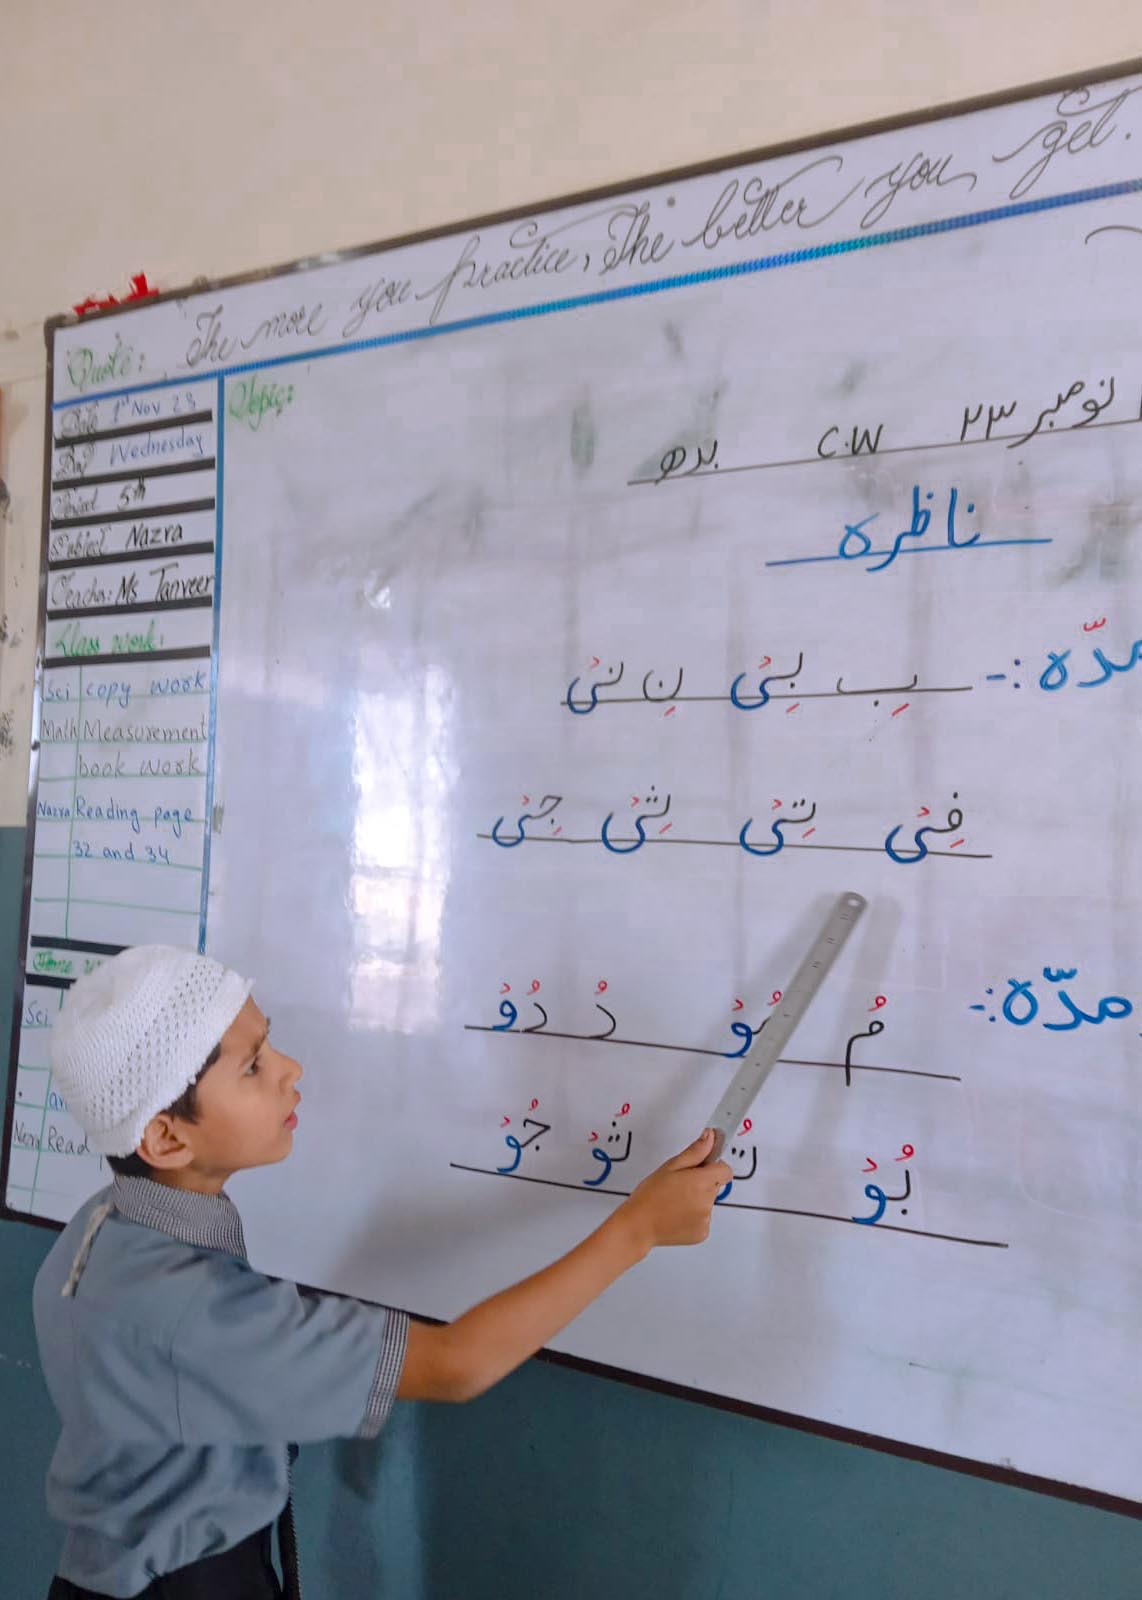 Quote: The more you practice, The better you get.
Date 1st Nov 23
Day Wednesday
Period 5th
Subject Nazra
Teacher: Ms Tanveer
Class work:
Sci copy work
Math Measurement
book work
Nazra Reading page
32 and 34
Home
Sci
Read
Topic:
نومبر ۲۳ C.W بدھ
ناظرہ
مدّہ :- بِ بِىْ نِ نِىْ
فِىْ تِىْ ثِىْ جِىْ
مدّہ :- مُ دُ دُوْ
بُوْ ثُوْ جُوْ